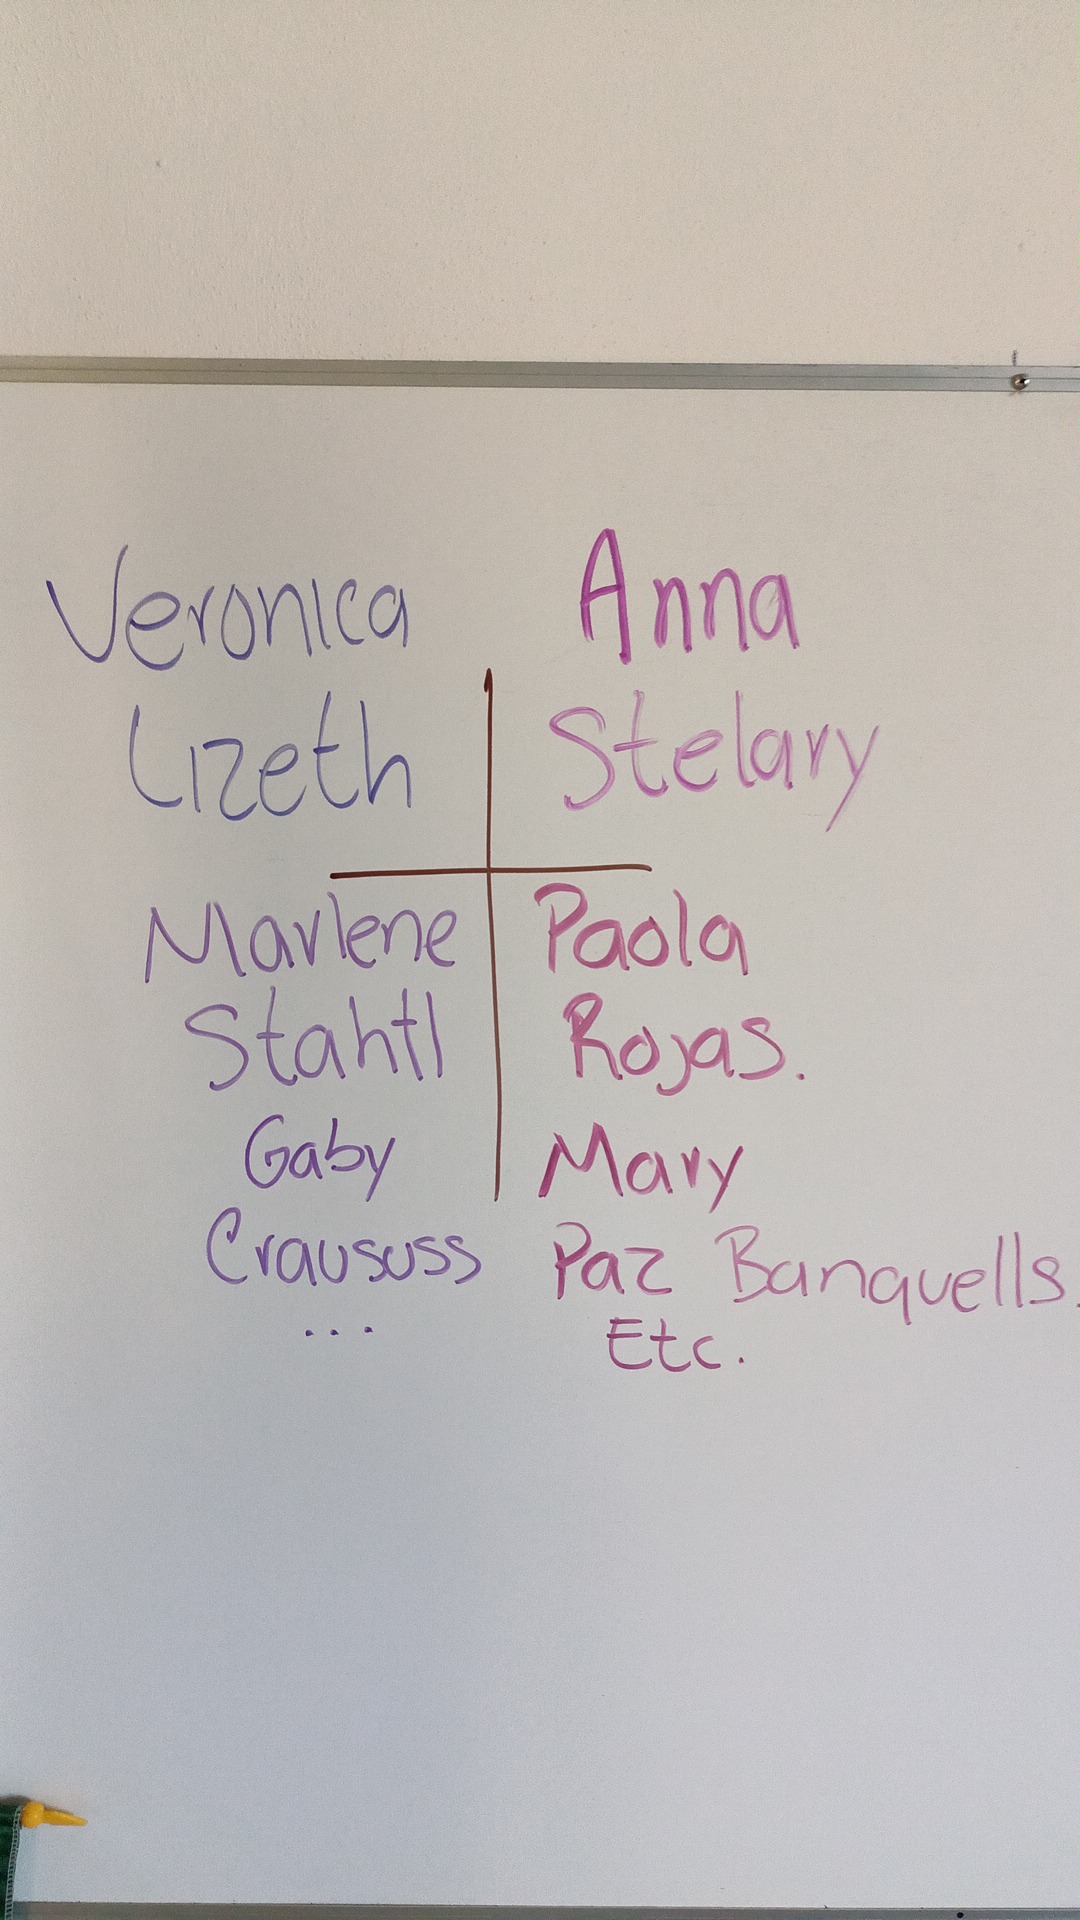 Veronica
Lizeth
Marlene
Stahtl
Gaby
Craususs
...
Anna
Stelary
Paola
Rojas.
Mary
Paz Banquells.
Etc.